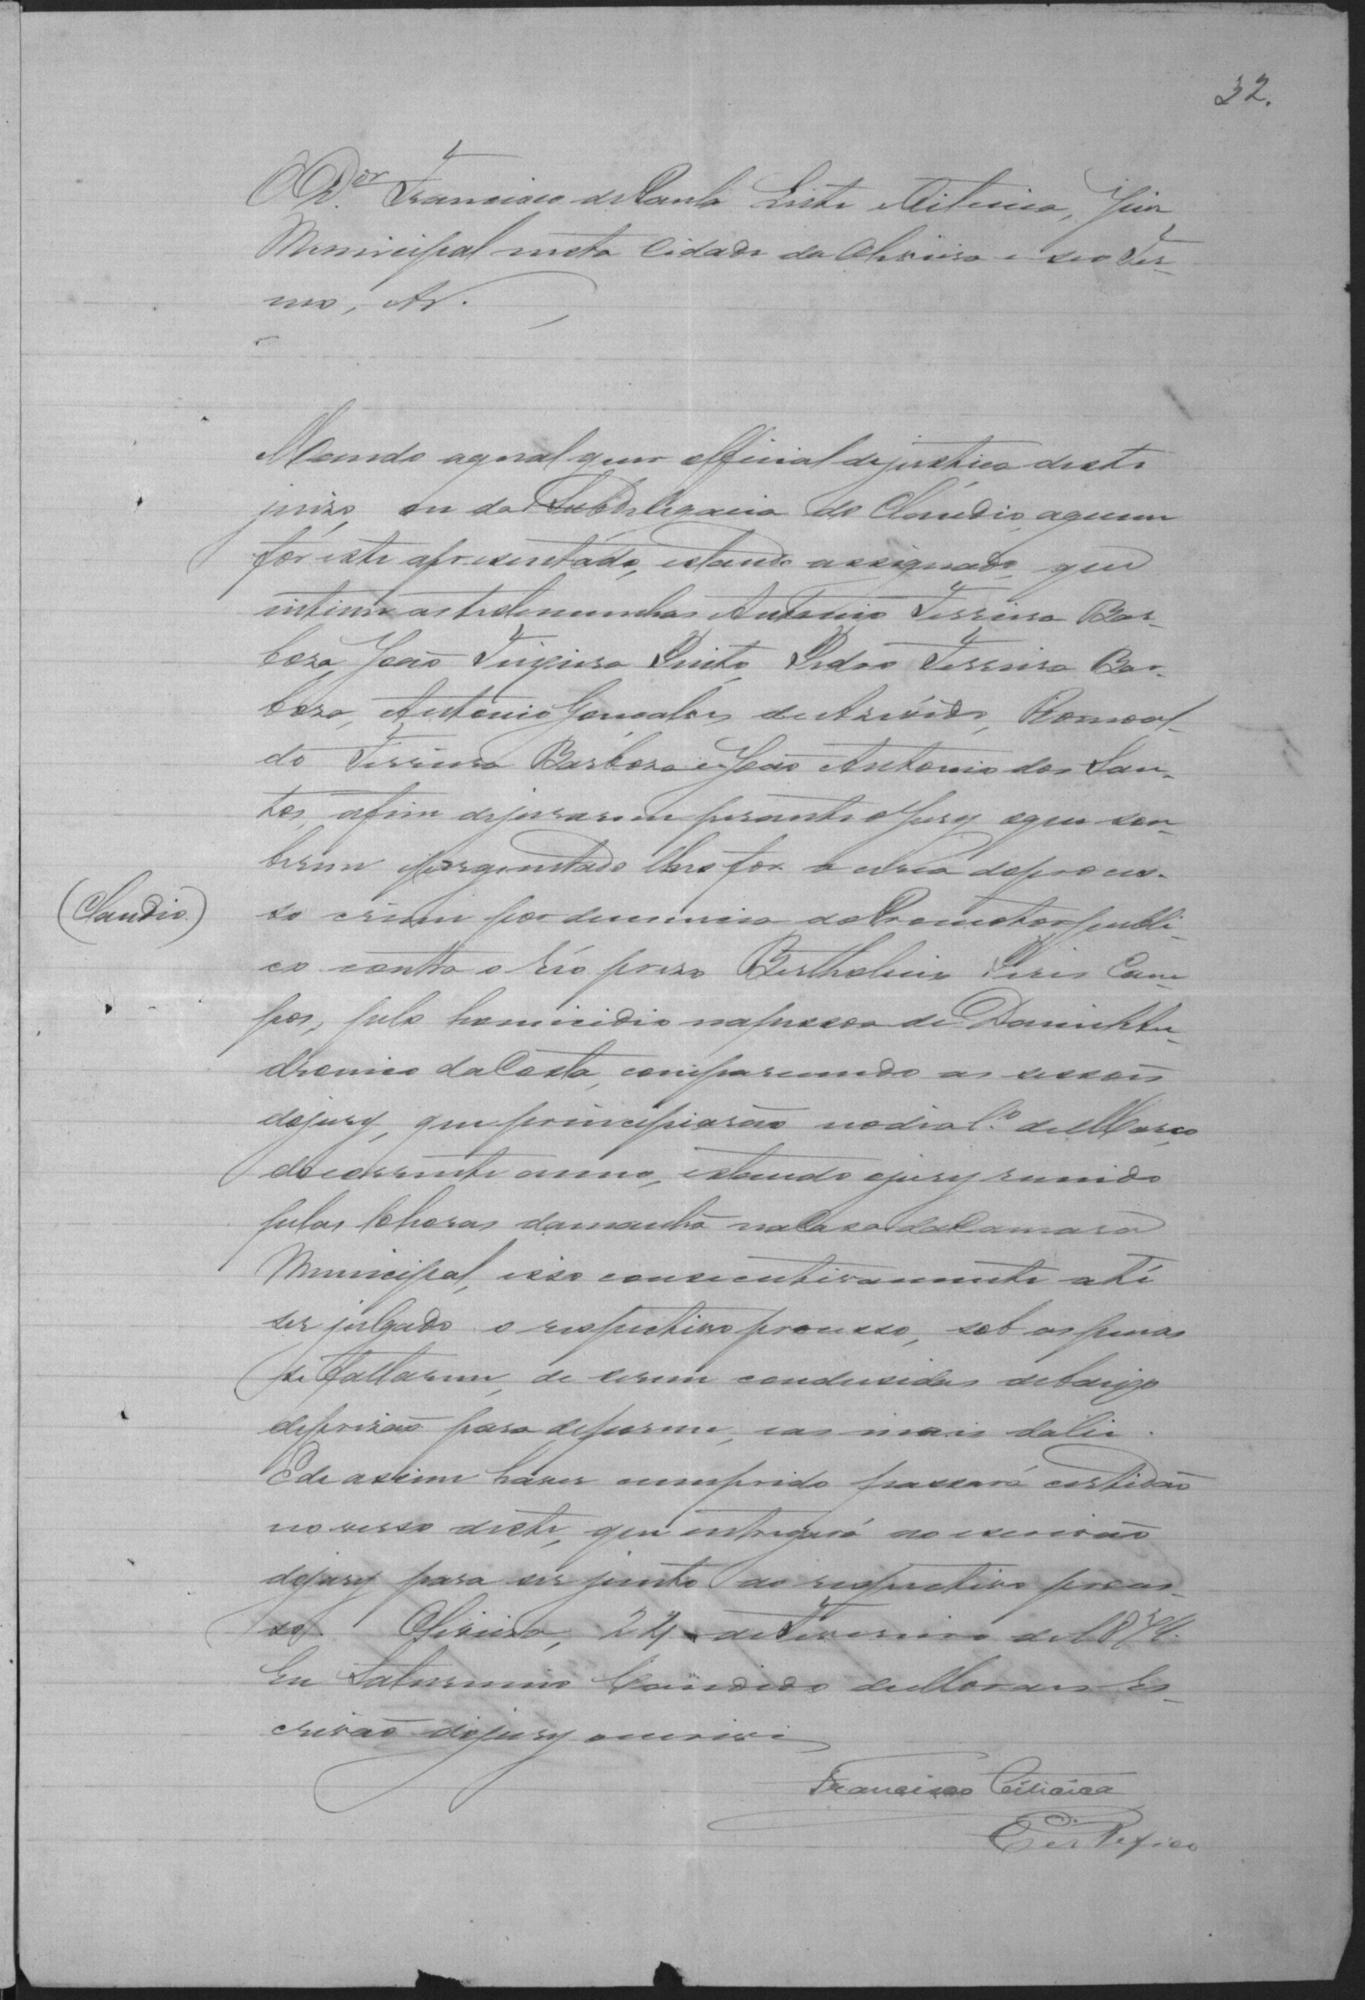 32.
O Dor. Francisco de Paula Leite e Oiticica, Juiz
Municipal nesta Cidade da Oliveira e seo Ter-
mo, &.
Mando a qual quer official de justiça deste
juizo, ou da Subdelegacia do Claudio, a quem
fôr este apresentado, estando assignado, que
intime as testemunhas Antonio Ferreira Bar-
boza, João Teixeira Pinto, Pedro Ferreira Bar-
boza, Antonio Gonçalves de Azevêdo, Romoal-
do Ferreira Barboza e João Antonio dos San-
tos, afim de jurarem perante o Jury o que sou-
berem e perguntado lhes for a cerca do proces-
(Claudio)
so crime por denuncia do Promotor publi-
co contra o réo prezo Bertholino Pires Cam-
pos, pelo homicidio na pessoa de
da Costa, comparecendo as sessoes
do jury, que principiarão no dia 1.º de Março
do corrente anno, estando o jury reunido
pelas 10 horas da manhã na Casa da Camara
Municipal, e isso consecutivamente até
ser julgado o respectivo processo, sob as penas
se faltarem, de serem condusidas debaixo
de prizão para deporem, e as mais da lei.
E de assim haver cumprido passará certidão
no verso deste, que entregará ao escrivão
do jury para ser junto ao respectivo proces-
so. Oliveira, 24 de Fevereiro de
Eu Saturnino Candido de Moraes Es-
crivão do jury o escrevi
Francisco Oiticica
Certefico